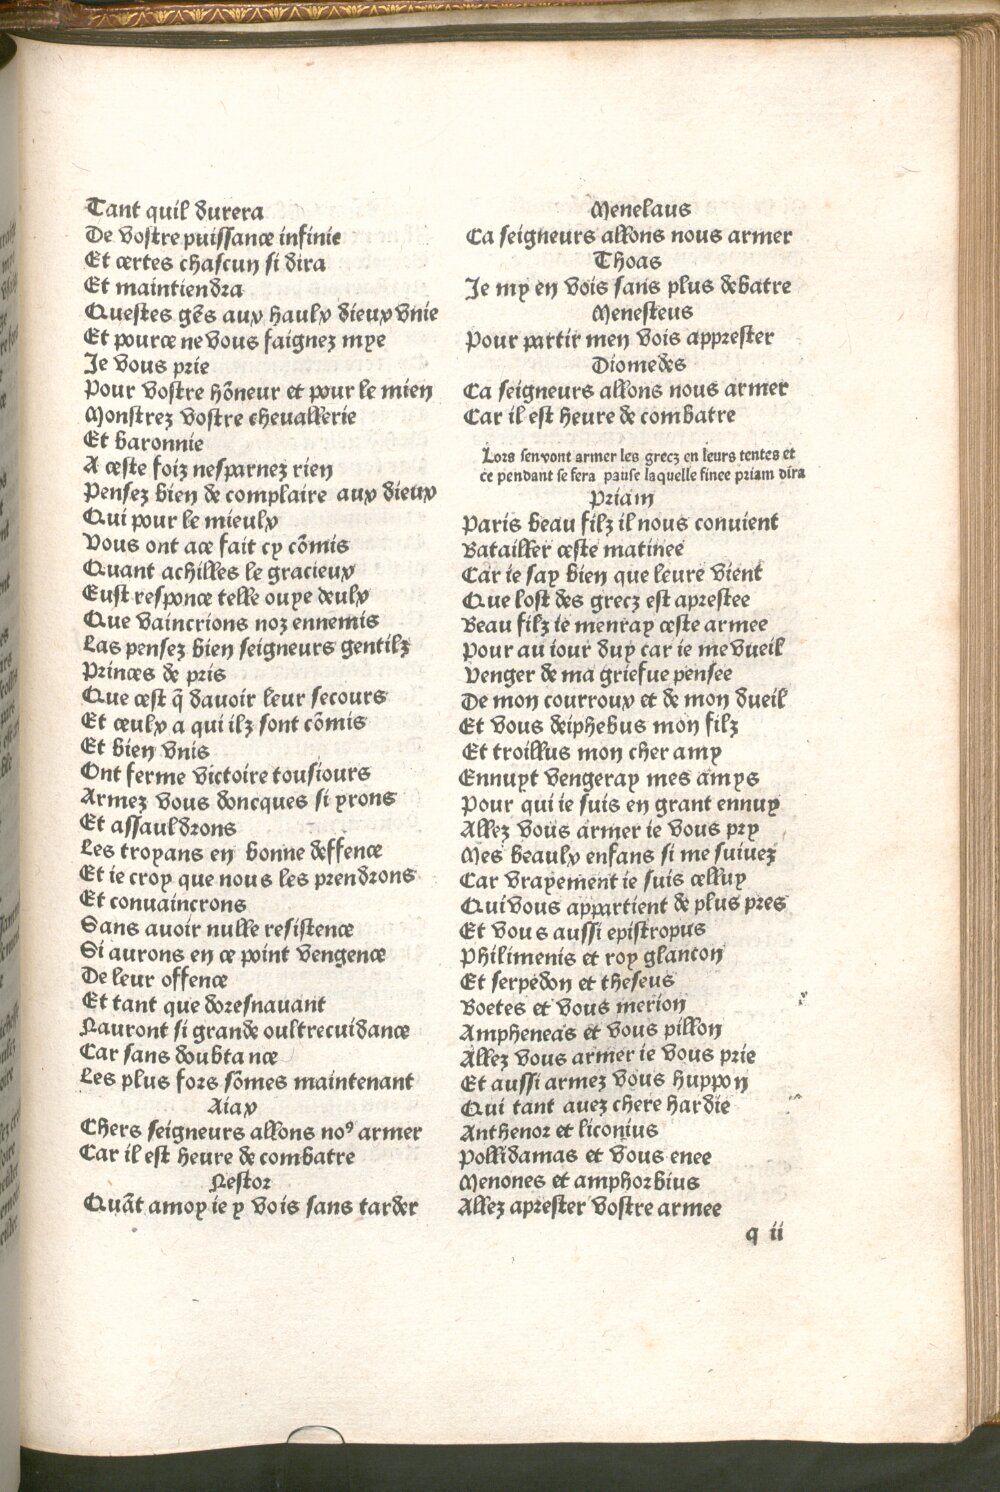 Tant quil durera
De vostre puissance infinie
Et certes chascun si dira
Et maintiendra
Questes gēs aux haulx dieux vnie
Et pource ne vous faignez mye
Je vous prie
Pour vostre hōneur et pour le mien
Monstrez vostre cheuallerie
Et baronnie
A ceste foiz nesparnez rien
Pensez bien de complaire aux dieux
Qui pour le mieulx
Vous ont ace fait cy cōmis
Quant achilles le gracieux
Eust responce telle ouye deulx
Que vaincrions noz ennemis
Las pensez bien seigneurs gentilz
Princes de pris
Que cest q̄ dauoir leur secours
Et ceulx a qui ilz sont cōmis
Et bien vnis
Ont ferme victoire tousiours
Armez vous doncques si yrons
Et assauldrons
Les troyans en bonne deffence
Et ie croy que nous les prendrons
Et conuaincrons
Sans auoir nulle resistence
Si aurons en ce point vengence
De leur offence
Et tant que doresnauant
Nauront si grande oultrecuidance
Car sans doubtance
Les plus fors sōmes maintenant
Aiax
Chers seigneurs allons noꝰ armer
Car il est heure de combatre
Nestor
Quāt amoy ie y vois sans tarder
Menelaus
Ca seigneurs allons nous armer
Thoas
Je my en vois sans plus debatre
Menesteus
Pour partir men vois apprester
Diomedes
Ca seigneurs allons nous armer
Car il est heure de combatre
Lors senvont armer les grecz en leurs tentes et
ce pendant se fera pause laquelle finee priam dira
Priam
Paris beau filz il nous conuient
Batailler ceste matinee
Car ie say bien que leure vient
Que lost des grecz est aprestee
Beau filz ie menray ceste armee
Pour au iour duy car ie me vueil
Venger de ma griefue pensee
De mon courroux et de mon dueil
Et vous deiphebus mon filz
Et troillus mon cher amy
Ennuyt vengeray mes amys
Pour qui ie suis en grant ennuy
Allez vous armer ie vous pry
Mes beaulx enfans si me suiuez
Car vrayement ie suis celluy
Qui vous appartient de plus pres
Et vous aussi epistropus
Philimenis et roy glancon
Et serpedon et theseus
Boetes et vous merion
Ampheneas et vous pillon
Allez vous armer ie vous prie
Et aussi armez vous huppon
Qui tant auez chere hardie
Anthenor et liconius
Pollidamas et vous enee
Menones et amphorbius
Allez aprester vostre armee
q ii